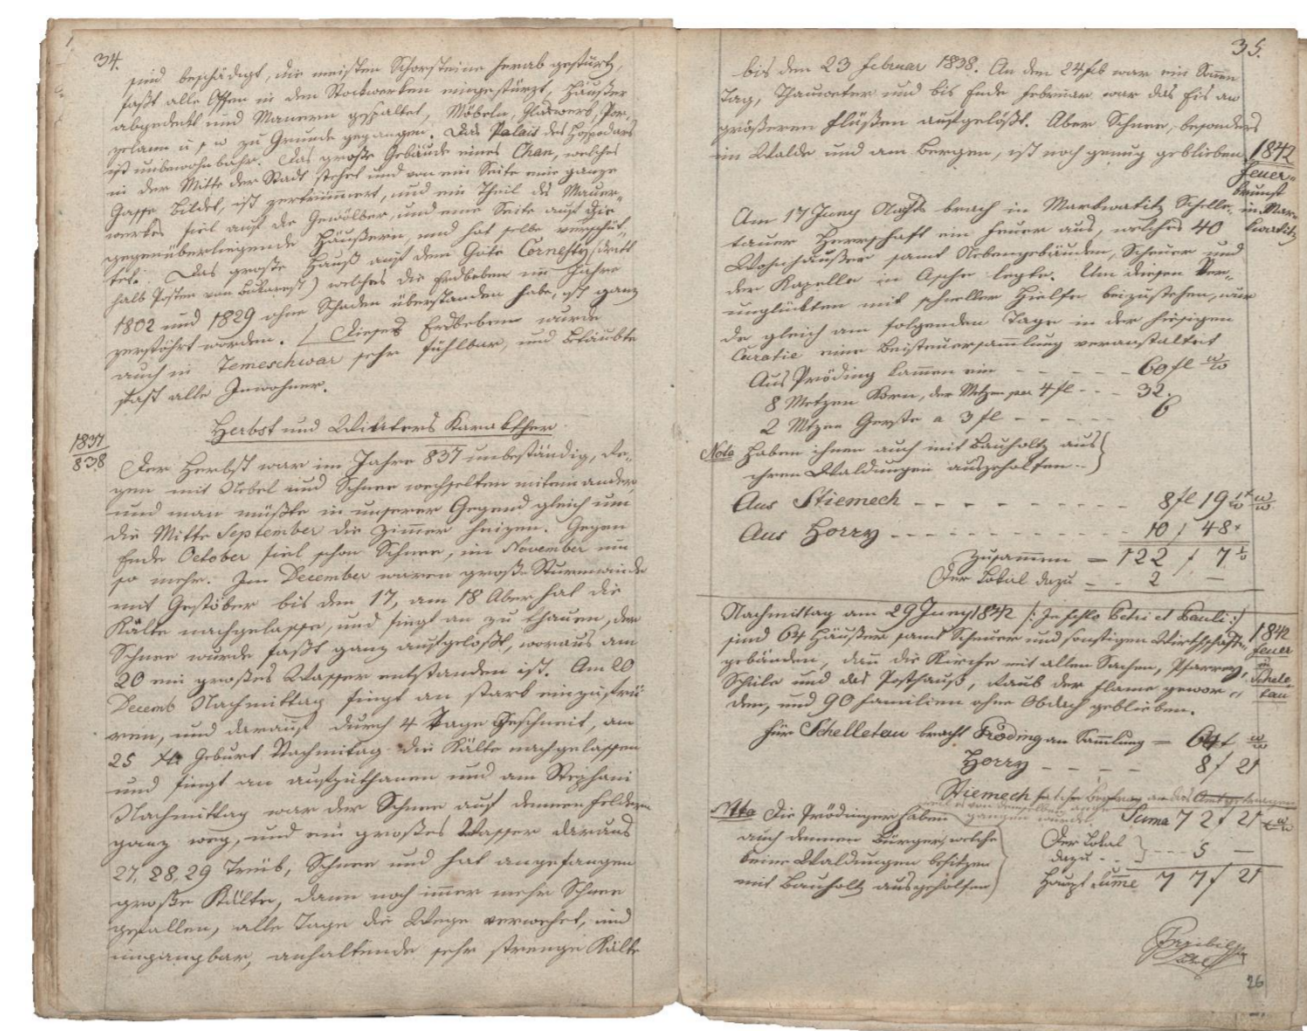 34.
sind beschädigt, die meisten Schorsteine herab gestürtz,
faßt alle Öffen in den Stockwerken eingestürzt, Häußer
abgedekt und Mauern gespaltet, Möbeln, Glaswerk, Por,,
zelann u s w zu Grunde gegangen. Das Palais des Hospodars
ist unbewohnbahr. Das große Gebäude eines Chan, welches
in der Mitte der Stadt stehet und von ein Seite eine ganze
Gasse Bildet, ist zertrümmert, und ein Theil des Mauer-
werkes fiel auf die Gewölber, und eine Seite auf die
gegenüberliegende Häußern, und hat selbe verschüt,,
tet. Das große Hauß auf dem Gute Cornesty (dritt
halb Posten von Bukarest) welches die Erdbeben im Jahre
1802 und 1829 ohne Schaden überstanden habe, ist ganz
zerstöhrt worden. Dieses Erdbeben wurde
auch in Temeschwar sehr fühlbar, und betäubte
fast alle Inwohner.
Herbst und Winters Karakther
1837
838
Der Herbst war im Jahre 837 unbeständig, Re-
gen mit Nebel und Schnee wechselten mitein ander,
und man müßte in unserer Gegend gleich um
die Mitte September die Zimmer heizen. Gegen
Ende October fiel schon Schnee, im November um
so mehr. Im December waren große Sturmwinde
mit Gestöber bis den 17, am 18 Aber hat die
Kälte nachgelassen, und fingt an zu thauen, der
Schnee wurde faßt ganz aufgelößt, woraus am
20 ein großes Wasser entstanden ist. Am 20
Decemb Nachmittag fingt an stark einzufrü
ren, und darauf durch 4 Tage geschneit, am
25 Geburt Nachmitag die Kälte nachgelassen
und fingt an aufzuthauen und am Stephani
Nachmittag war der Schnee auf denen Feldern
ganz weg, und ein großes Wasser daraus
27, 28, 29 Trüb, Schnee und hat angefangen
große Kälte, dann noch immer mehr Schnee
gefallen, alle Tage die Wege verwehet, und
umgangbar, anhaltende sehr strenge Kälte
35.
bis den 23 Februar 1838. An den 24 feb war ein Sonen
Tag, Thauweter und bis Ende Februar war das Eis an
größeren Flüßen aufgelößt. Aber Schnee, besonders
im Walde und am Bergen, ist noch genug geblieben
1842
Feuer-
brunst
in Mar-
kwatitz
Am 17 Juny Nachts brach in Markwatitz Schille-
tauer Herrschaft ein Feuer aus, welches 40
Wohnhäußer samt Nebengebäuden, Scheuer und
der Kapelle in Asche legte. Um diesen Ver-
unglückten mit schneller Hielfe beizustehen, wur
de gleich am folgenden Tage in der hiesigen
Curatie eine Beisteuersammlung veranstaltet
Aus Pröding kamen ein - - - - - 60 fl
8 Metzen Korn, der Metzen per 4 fl - - - 32.
2 Mtzen Gerste a 3 fl - - - - - 6
Nota Haben ihnen auch mit Bauholtz aus
ihren Waldungen ausgeholfen - -
Aus Stiemech - - - - - - - - - 8 fl 19
Aus Horry - - - - - - - - - - - 10 f 48
Zusammen = 122 f 7
Der Lokal dazu - - 2 -
Nachmittag am 29 Juny 1842 /: In festo Petri et Pauli :/
sind 64 Häußer samt Scheuer und sonstigen Wirtschafts,,
gebäuden, dan die Kirche mit allen Sachen, Pfarrey,
Schule und das Posthauß, Raub der Flame gewor,,
den, und 90 Familien ohne Obdach geblieben.
1842
Feuer
in
Schele-
tau
Für Schelletau bracht Pröding an Sammlung - 64 f
Horry - - - - - 8 f 21
Stiemech
Suma 72 f 21
Nota Die Prödinger haben
auch dennen Bürgern, welche
keine Waldungen besitzen
mit Bauholtz ausgeholfen
Der Lokal
dazu - - - - 5 -
Haupt Sume 77 f 21
26